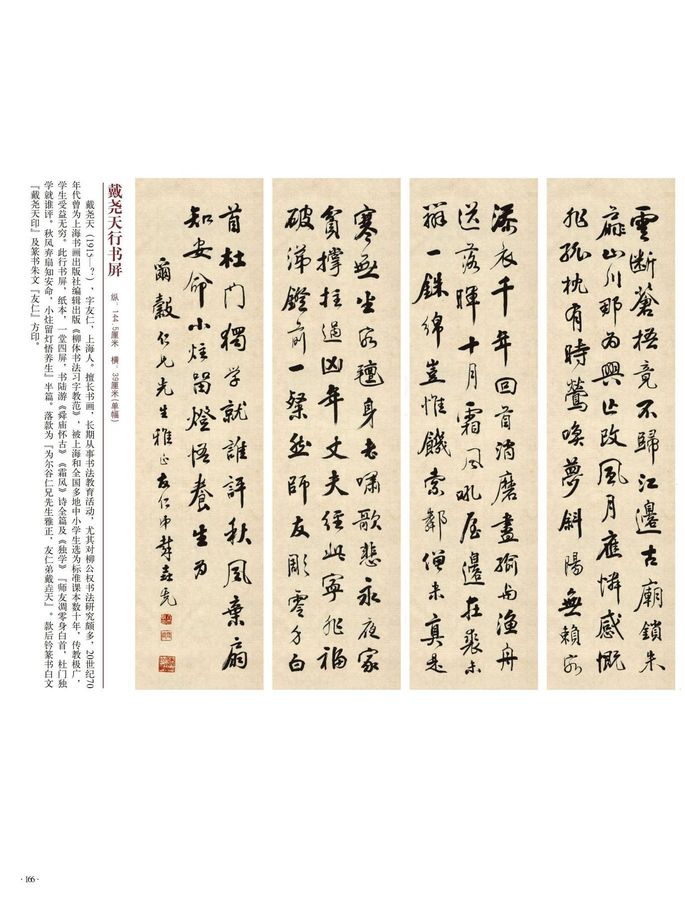 雲斷蒼梧竟不歸江邊古廟鎖朱
扉山川那為興亡改風月應憐感慨
非孤枕有時鶯喚夢斜陽無賴客
添衣千年回首消磨盡輸與漁舟
送落暉十月霜風吼屋邊布裘未
辦一銖綿豈惟饑索鄰僧米真是
寒無坐客氈身老嘯歌悲永夜家
貧撐拄過凶年丈夫經此寧非福
破涕燈前一粲然師友彫零手白
首杜門獨學就誰評秋風棄扇
知安命小炷留燈悟養生為
爾穀仁兄先生雅正友仁弟戴垚天
戴尧天行书屏
纵：144.5厘米 横：39厘米(单幅)
戴尧天（1915—？），字友仁，上海人。擅长书画，长期从事书法教育活动，尤其对柳公权书法研究颇多，20世纪70
年代曾为上海书画出版社编辑出版《柳体书法习字教范》，被上海和全国多地中小学生选为标准课本数十年，传教极广，
学生受益无穷。此行书屏，纸本，一堂四屏，书陆游《舜庙怀古》《霜风》诗全篇及《独学》『师友凋零身白首，杜门独
学就谁评。秋风弃扇知安命，小炷留灯悟养生』半篇。落款为『为尔谷仁兄先生雅正，友仁弟戴垚天』。款后钤篆书白文
『戴尧天印』及篆书朱文『友仁』方印。
·166·